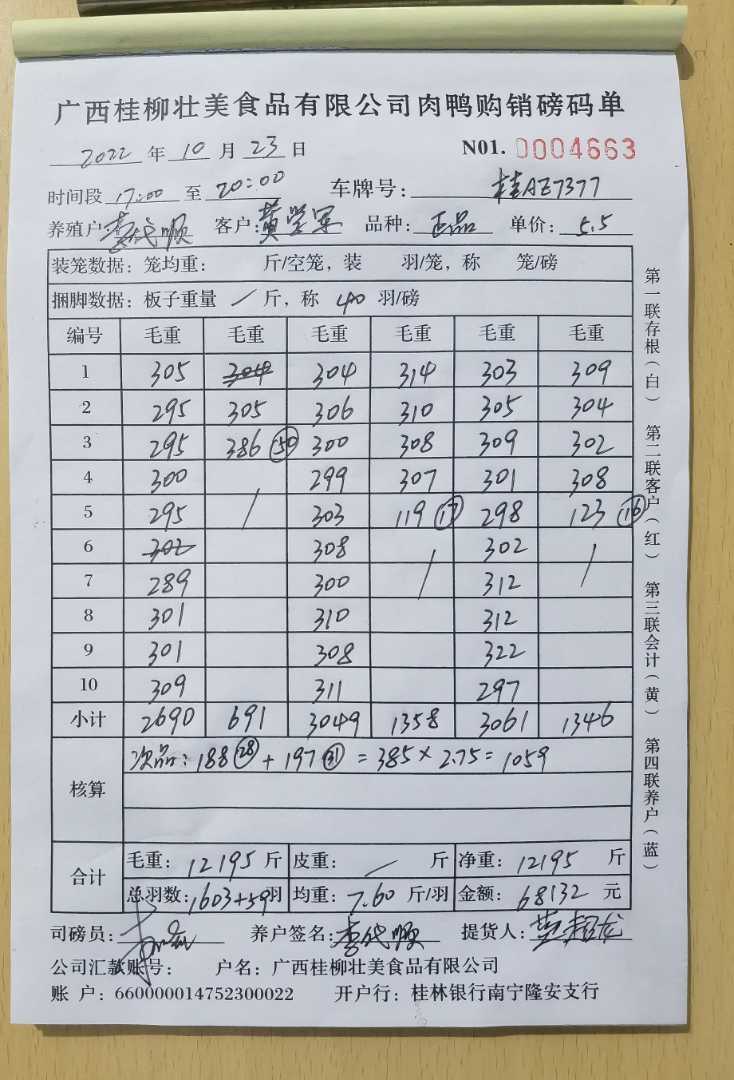 广西桂柳壮美食品有限公司肉鸭购销磅码单
2022 年 10 月 23 日 N01. 0004663
时间段 17:00 至 20:00 车牌号: 桂AE7377
养殖户 李代顺 客户: 黄学军 品种: 正品 单价: 5.5
装笼数据: 笼均重: 斤/空笼, 装 羽/笼, 称 笼/磅
捆脚数据: 板子重量 / 斤, 称 40 羽/磅
编号 毛重 毛重 毛重 毛重 毛重 毛重
1 305 304 304 314 303 309
2 295 305 306 310 305 304
3 295 386 (50) 300 308 309 302
4 300 299 307 301 308
5 295 / 303 119 (17) 298 123 (16)
6 302 308 302
7 289 300 / 312 /
8 301 310 312
9 301 308 322
10 309 311 297
小计 2690 691 3049 1358 3061 1346
核算 次品: 188 (28) + 197 (31) = 385 × 2.75 = 1059
合计 毛重: 12195 斤 皮重: / 斤 净重: 12195 斤
总羽数: 1603+59 羽 均重: 7.60 斤/羽 金额: 68132 元
司磅员: 养户签名: 李代顺 提货人: 黄超龙
公司汇款账号: 户名: 广西桂柳壮美食品有限公司
账 户: 660000014752300022 开户行: 桂林银行南宁隆安支行
第一联存根(白) 第二联客户(红) 第三联会计(黄) 第四联养户(蓝)